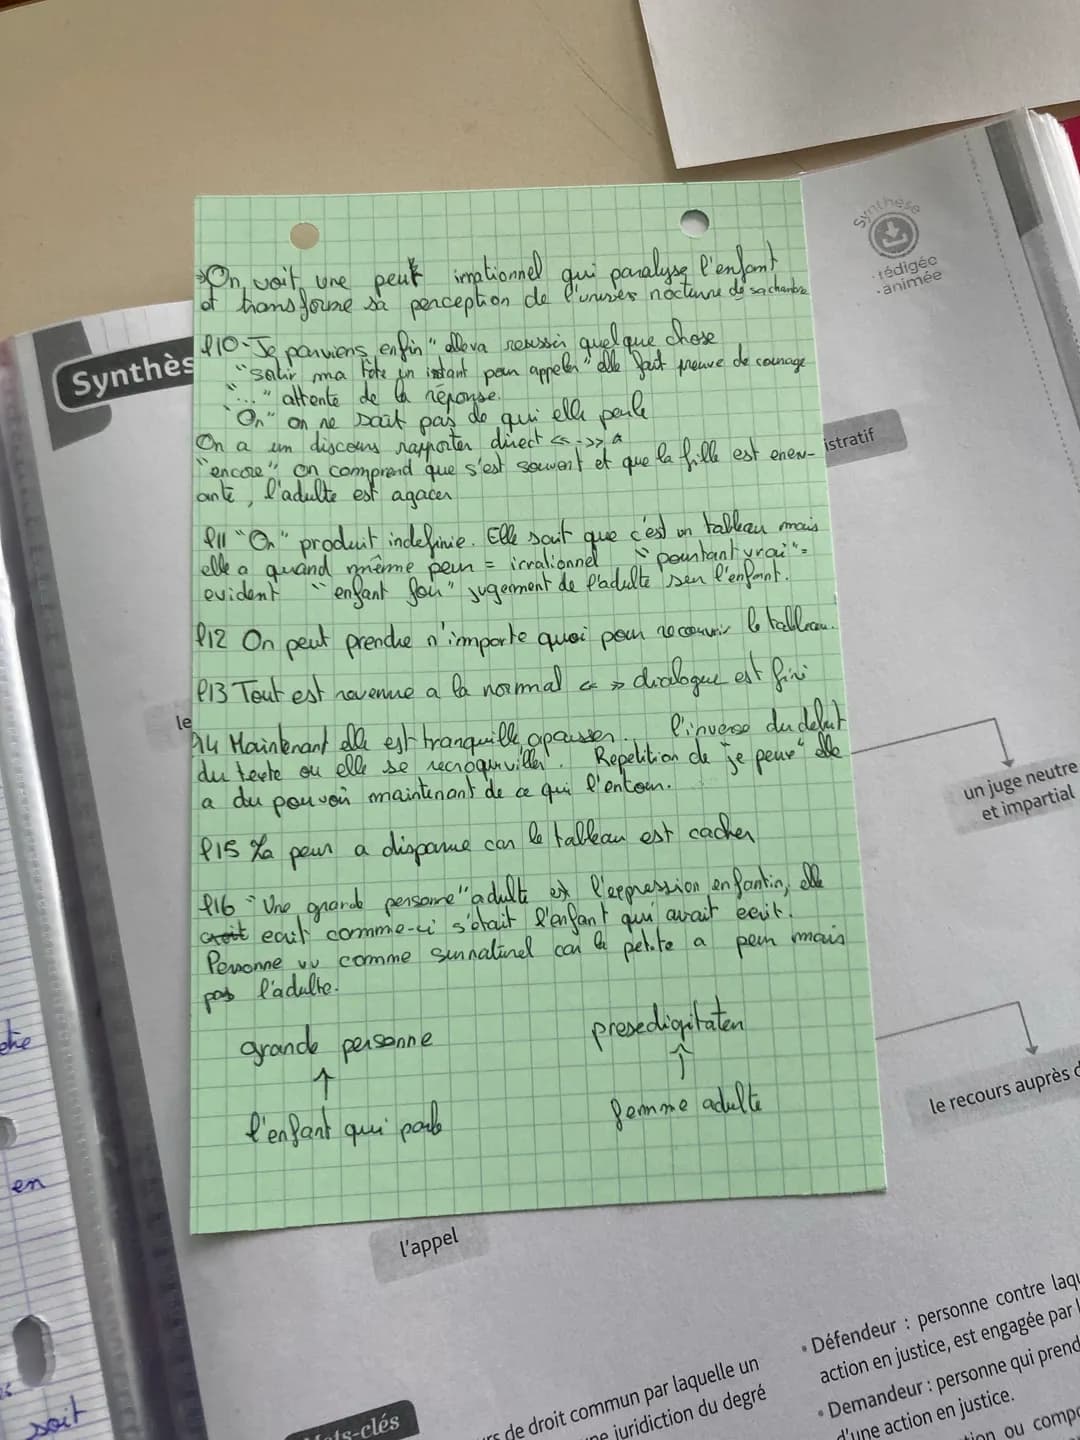 Synthèse
rédigée
animée
Synthès
→On voit une peur irrationnel qui paralyse l'enfant
et transforme sa perception de l'univers nocturne de sa chambre
l10 "Je parviens enfin" elle va reussir quelque chose
"sortir ma tête un instant pour appeler" elle fait preuve de courage
"..." attente de la réponse.
"On" on ne sait pas de qui elle parle
On a un discours rapporter direct «-»
"encore" on comprend que s'est souvent et que la fille est enerv-
ante, l'adulte est agacer
istratif
l11 "On" produit indefinie. Elle sait que c'est un tableau mais
elle a quand même peur = irrationnel "pourtant vrai" =
evident "enfant fou" jugement de l'adulte sur l'enfant.
l12 On peut prendre n'importe quoi pour recouvrir le tableau.
l13 Tout est revenue a la normal « » dialogue est fini
le
l14 Maintenant elle est tranquille, apaiser. l'inverse du debut
du texte ou elle se recroqueviller. Repetition de "je peux" elle
a du pouvoir maintenant de ce qui l'entour.
un juge neutre
et impartial
l15 La peur a disparue car le tableau est cacher
l16 "Une grande personne" adulte est l'expression enfantin, elle
croit ecrit comme-ci s'était l'enfant qui avait ecrit.
Personne vu comme surnaturel car la petite a peur mais
pas l'adulte.
grande personne
↑
l'enfant qui parle
presedigitaten
↑
femme adulte
le recours auprès d
en
l'appel
soit
Mots-clés
rs de droit commun par laquelle un
ne juridiction du degré
• Défendeur : personne contre laqu
action en justice, est engagée par l
• Demandeur : personne qui prend
d'une action en justice.
tion ou comp